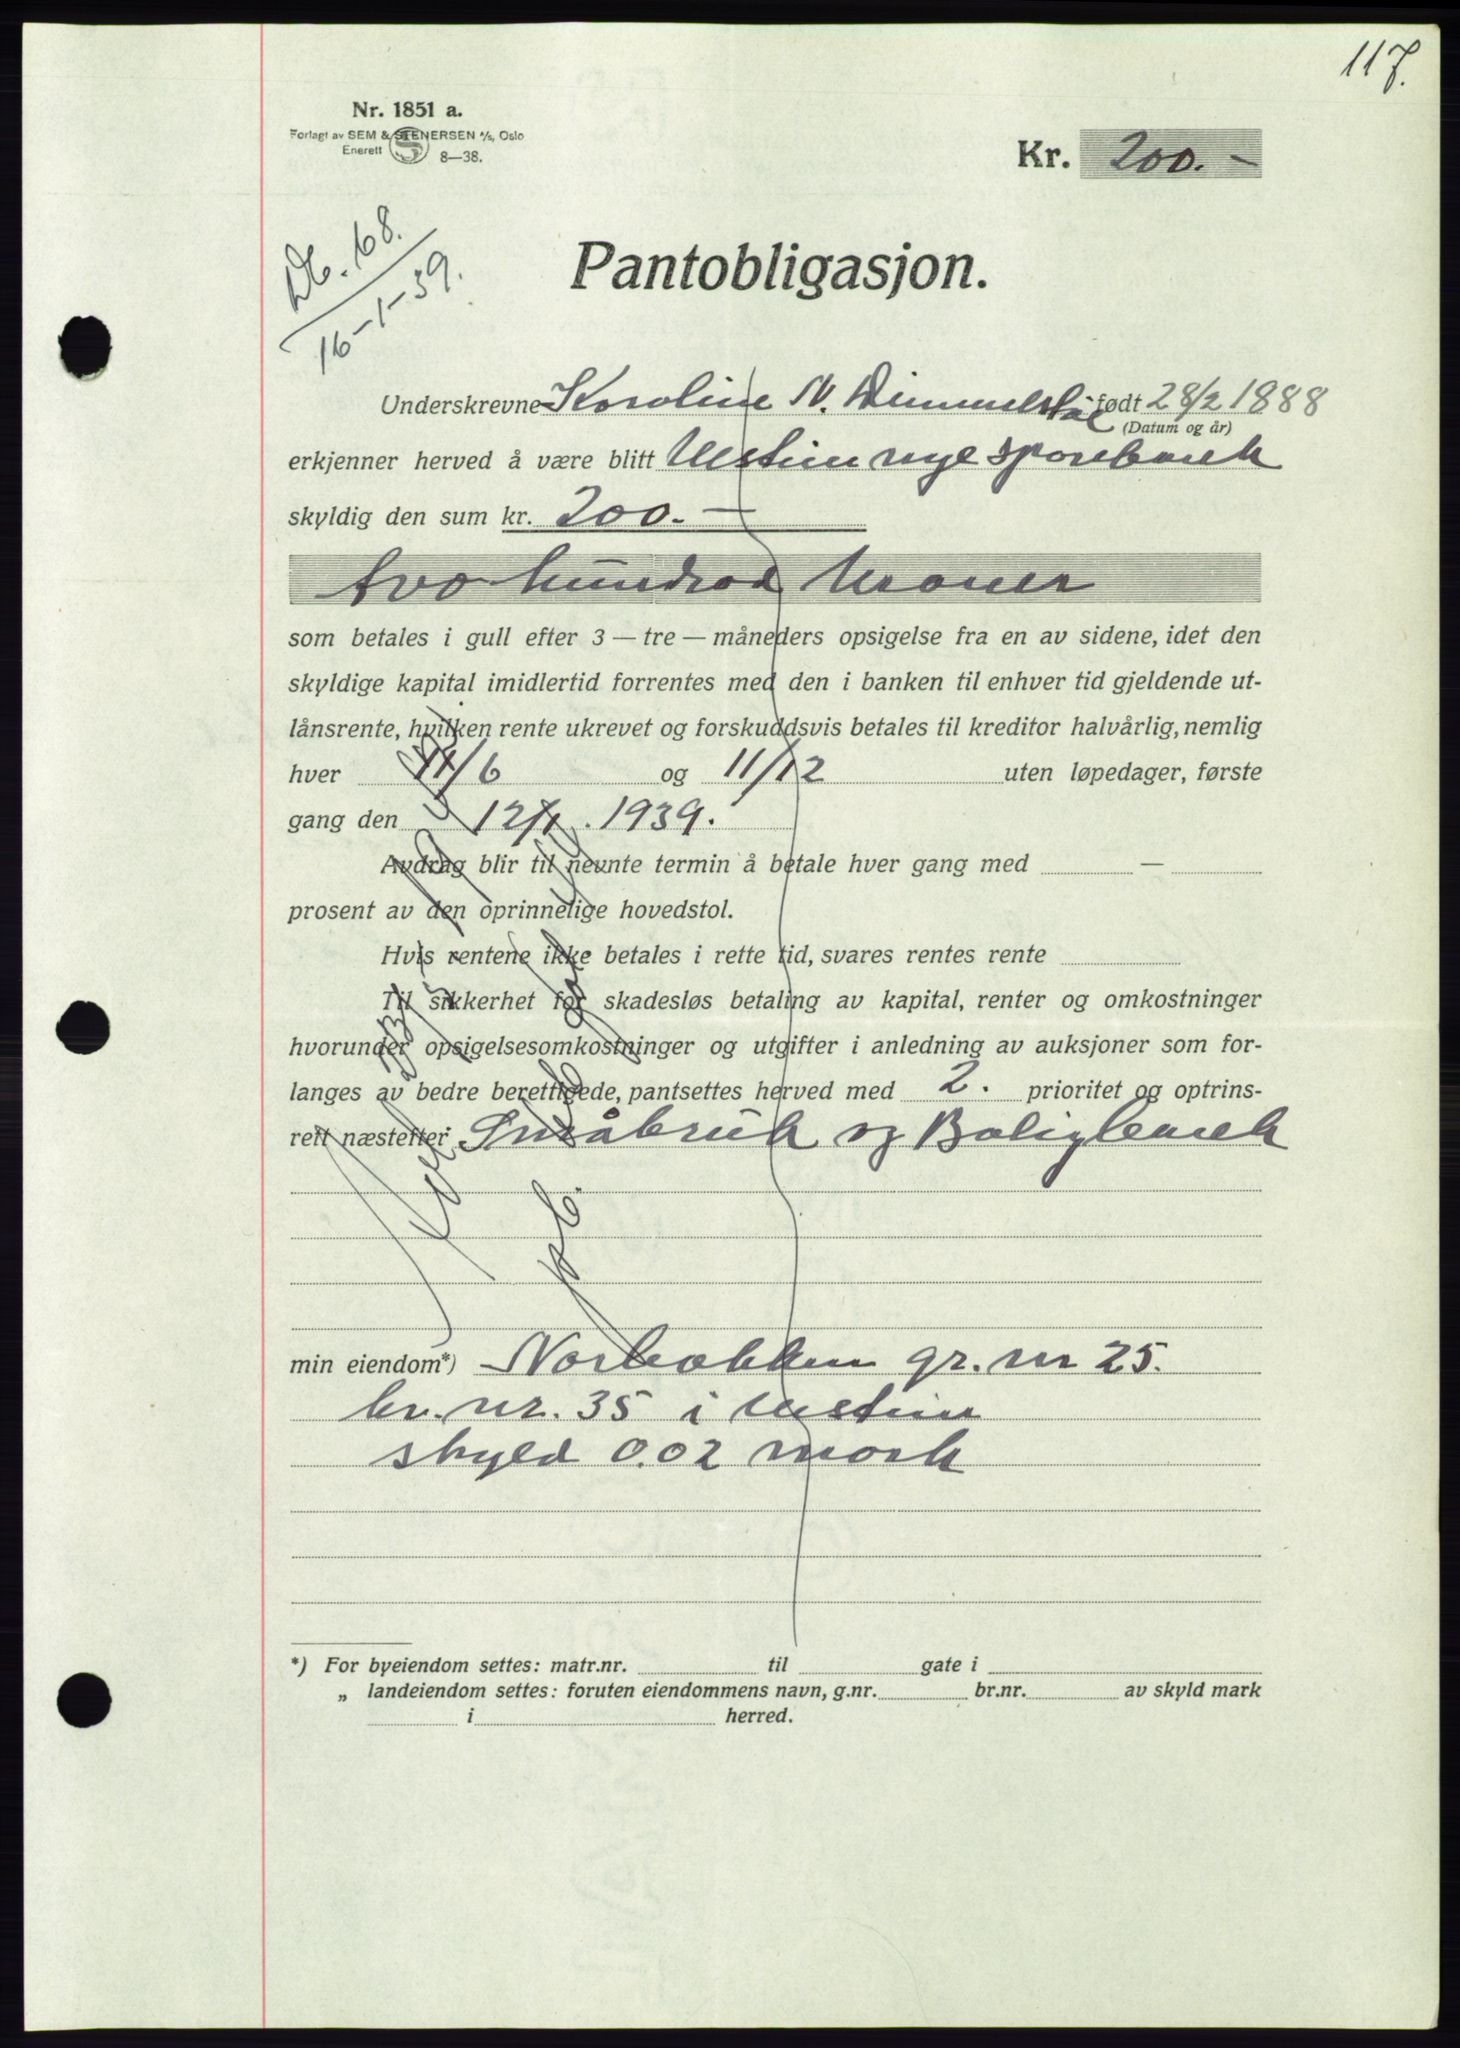 117.
Nr. 1851 a.
Forlagt av SEM & STENERSEN A/S, Oslo
Enerett 8—38.
Kr. 200.-
Db. 68.
16-1-39.
Pantobligasjon.
Underskrevne Karoline N. Dimmelsdal født 28/2 1888
(Datum og år)
erkjenner herved å være blitt Ulstein nye sparebank
skyldig den sum kr. 200.-
tvo hundrad kroner
som betales i gull efter 3 — tre — måneders opsigelse fra en av sidene, idet den
skyldige kapital imidlertid forrentes med den i banken til enhver tid gjeldende ut-
lånsrente, hvilken rente ukrevet og forskuddsvis betales til kreditor halvårlig, nemlig
hver 11/6 og 11/12 uten løpedager, første
gang den 12/1. 1939.
Avdrag blir til nevnte termin å betale hver gang med —
prosent av den oprinnelige hovedstol.
Hvis rentene ikke betales i rette tid, svares rentes rente
Til sikkerhet for skadesløs betaling av kapital, renter og omkostninger
hvorunder opsigelsesomkostninger og utgifter i anledning av auksjoner som for-
langes av bedre berettigede, pantsettes herved med 2. prioritet og optrins-
rett næstefter Småbruk og Boligbank
min eiendom*) Norbakken gr. nr 25.
br. nr. 35 i Ulstein
skyld 0.02 mark
*) For byeiendom settes: matr.nr. til gate i
„ landeiendom settes: foruten eiendommens navn, g.nr. br.nr. av skyld mark
i herred.